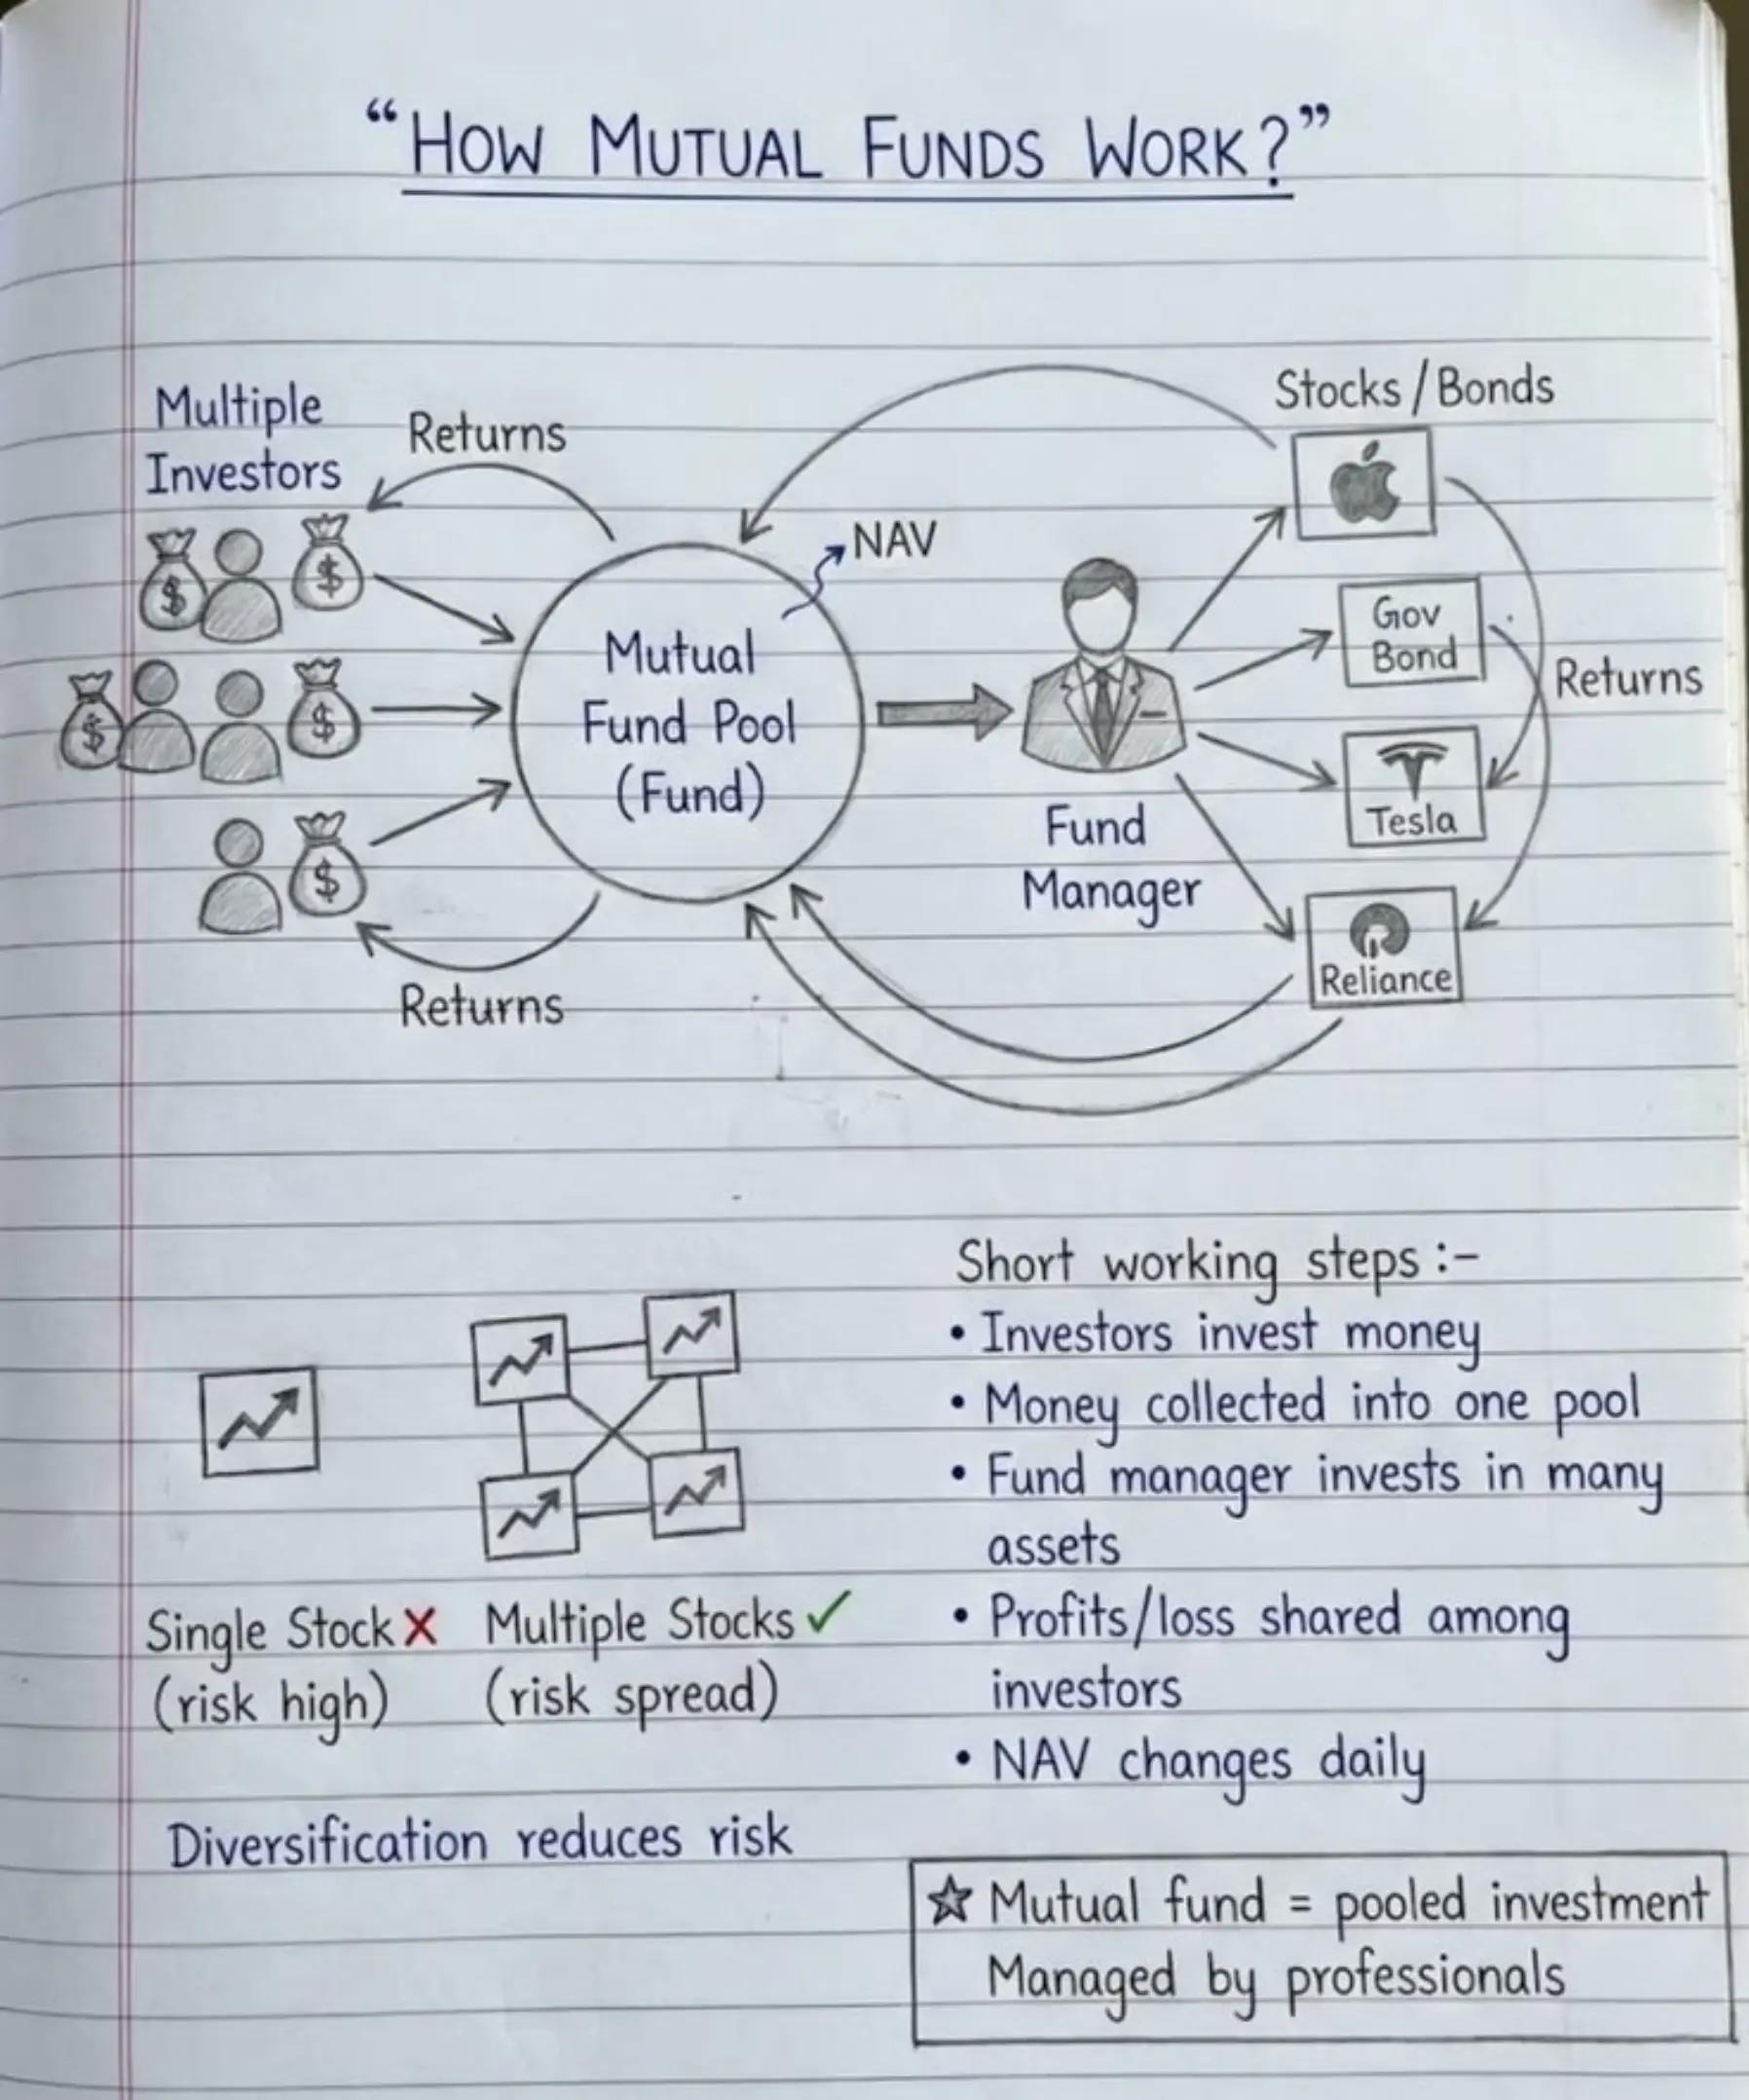 “HOW MUTUAL FUNDS WORK?”
Multiple
Investors
Returns
$
$
$
$
$
Returns
Mutual
Fund Pool
(Fund)
NAV
Fund
Manager
Stocks/Bonds
Gov
Bond
Tesla
Reliance
Returns
Single Stock X
(risk high)
Multiple Stocks ✓
(risk spread)
Diversification reduces risk
Short working steps :-
• Investors invest money
• Money collected into one pool
• Fund manager invests in many
assets
• Profits/loss shared among
investors
• NAV changes daily
☆ Mutual fund = pooled investment
Managed by professionals